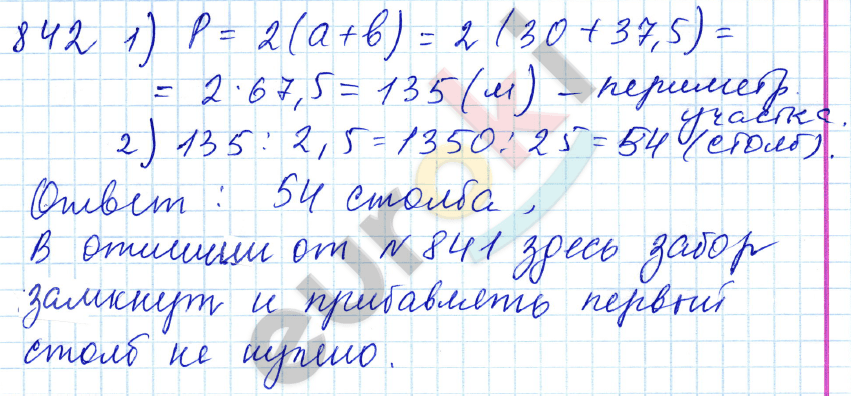 842 1) P = 2(a+b) = 2(30+37,5)=
= 2·67,5=135(м) – периметр
участка.
2) 135 : 2,5=1350:25=54 (столб).
Ответ : 54 столба,
В отличии от №841 здесь забор
замкнут и прибавлять первый
столб не нужно.
euroki